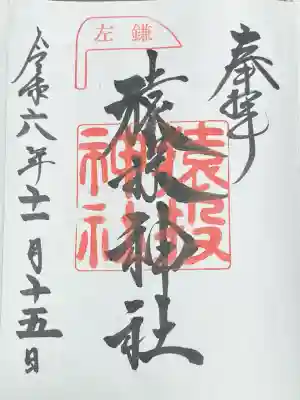 奉拝
左鎌
猿投神社
猿投神社
令和六年十一月十五日